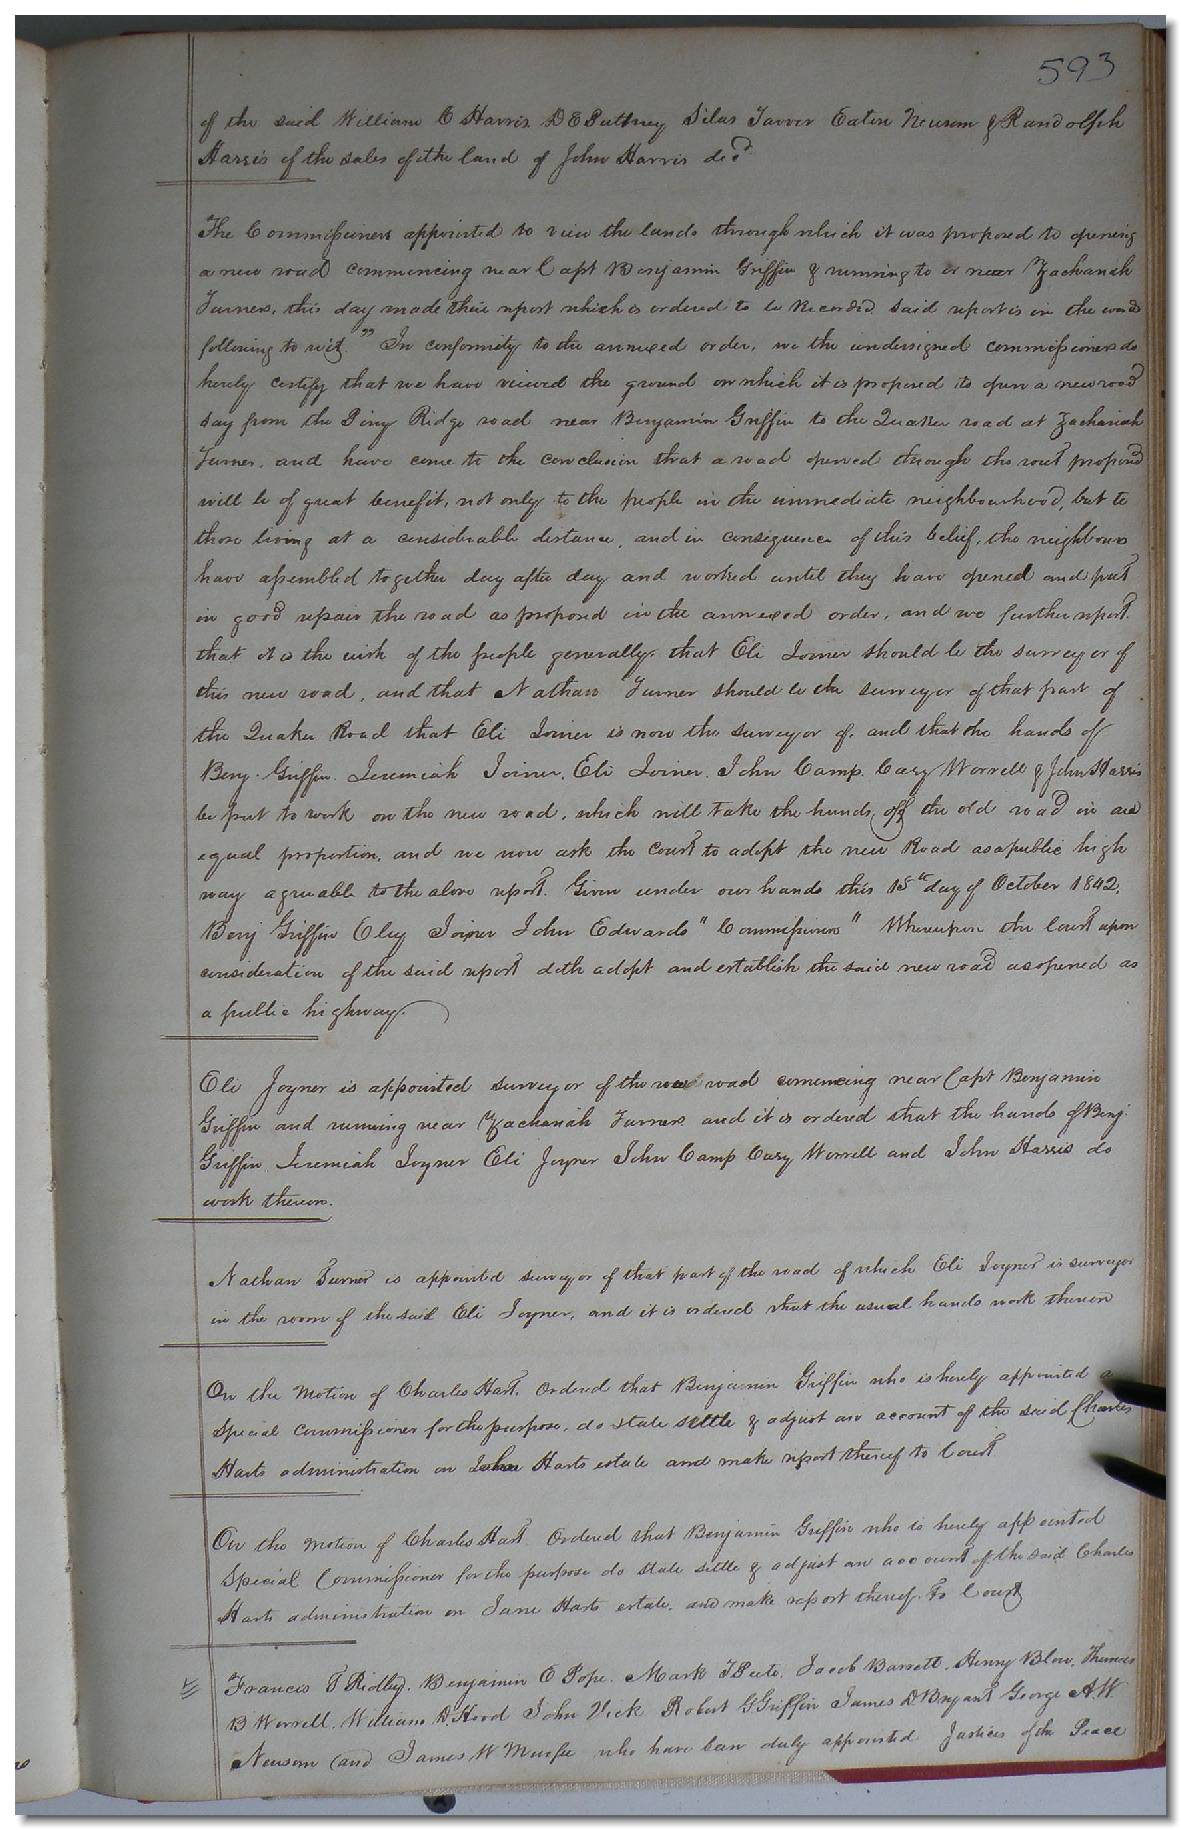 593
of the said William E Harris D E Puttney Silas Tarver Eaton Newsom & Randolph
Harris of the sales of the land of John Harris decd
The Commissioners appointed to view the lands through which it was proposed to opening
a new road commencing near Capt Benjamin Griffin & running to or near Zachariah
Turners, this day made their report which is ordered to be Recorded said report is in the words
following to wit. " In conformity to the annexed order, we the undersigned commissioners do
hereby certify that we have viewed the ground on which it is proposed to open a new road
say from the Piny Ridge road near Benjamin Griffin to the Quaker road at Zachariah
Turner, and have come to the conclusion that a road opened through the rout proposed
will be of great benefit, not only to the people in the immediate neighbourhood, but to
those living at a considerable distance, and in consequence of this belief, the neighbours
have assembled together day after day and worked until they have opened and put
in good repair the road as proposed in the annexed order, and we further report
that it is the wish of the people generally that Eli Joiner should be the surveyor of
this new road, and that Nathan Turner should be the surveyor of that part of
the Quaker Road that Eli Joiner is now the surveyor of, and that the hands of
Benj. Griffin. Jeremiah Joiner, Eli Joiner. John Camp. Cary Worrell & John Harris
be put to work on the new road, which will take the hands off the old road in an
equal proportion, and we now ask the court to adopt the new Road as a public high
way agreable to the above report. Given under our hands this 15th day of October 1842.
Benj Griffin Eley Joiner John Edwards "Commissioners" Whereupon the Court upon
consideration of the said report doth adopt and establish the said new road as opened as
a public highway.
Eli Joyner is appointed surveyor of the new road comencing near Capt Benjamin
Griffin and running near Zachariah Turners and it is ordered that the hands of Benj.
Griffin Jeremiah Joyner Eli Joyner John Camp Cary Worrell and John Harris do
work thereon.
Nathan Turner is appointed surveyor of that part of the road of which Eli Joyner is surveyor
in the room of the said Eli Joyner, and it is ordered that the usual hands work thereon
On the motion of Charles Hart. Ordered that Benjamin Griffin who is hereby appointed a
special commissioner for the purpose, do state settle & adjust an account of the said Charles
Harts administration on John Harts estate and make report thereof to Court
On the motion of Charles Hart Ordered that Benjamin Griffin who is hereby appointed
Special Commissioner for the purpose do state settle & adjust an account of the said Charles
Harts administration on Jane Harts estate. and make report thereof to Court
Francis T Ridley. Benjamin E Pope. Mark J Peete. Jacob Barrett. Henry Blow. Thomas
B Worrell. William D. Hood John Vick Robert G Griffin James D Bryant George A. W.
Newsom and James W Murfee who have been duly appointed Justices of the Peace